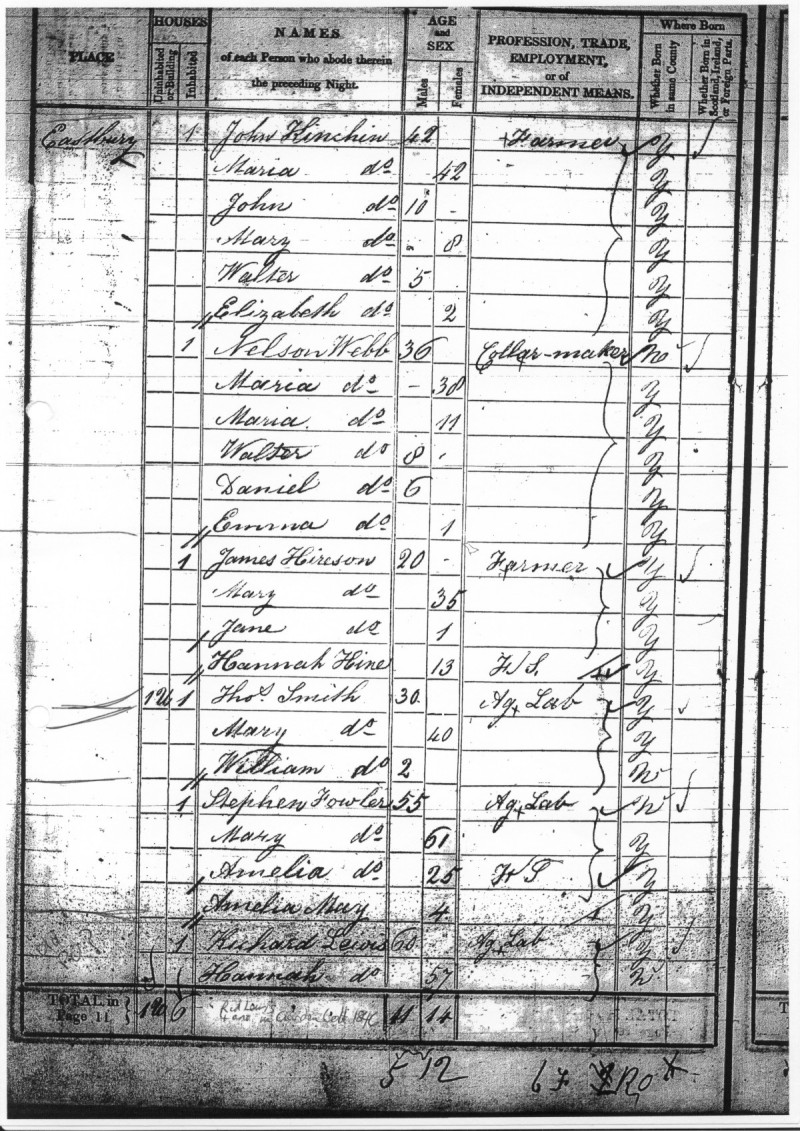 PLACE
HOUSES
Uninhabited or Building
Inhabited
NAMES
of each Person who abode therein
the preceding Night.
AGE
and
SEX
Males
Females
PROFESSION, TRADE,
EMPLOYMENT,
or of
INDEPENDENT MEANS.
Where Born
Whether Born in same County
Whether Born in Scotland, Ireland, or Foreign Parts.
Eastbury 1 John Kinchin 42 Farmer Y
Maria do 42 Y
John do 10 - Y
Mary do - 8 Y
Walter do 5 Y
Elizabeth do 2 Y
1 Nelson Webb 36 Collar-maker N
Maria do - 38 Y
Maria do 11 Y
Walter do 8 Y
Daniel do 6 Y
Emma do 1 Y
1 James Hireson 20 - Farmer Y
Mary do 35 Y
Jane do 1 Y
Hannah Hine 13 F S. Y
1 Thos. Smith 30 Ag Lab Y
Mary do 40 Y
William do 2 N
1 Stephen Fowler 55 Ag Lab N
Mary do 61 Y
Amelia do 25 F S Y
Amelia May 4 Y
1 Richard Lewis 60 Ag Lab Y
Hannah do 57 N
TOTAL in
Page 11. 6 11 14
5 12